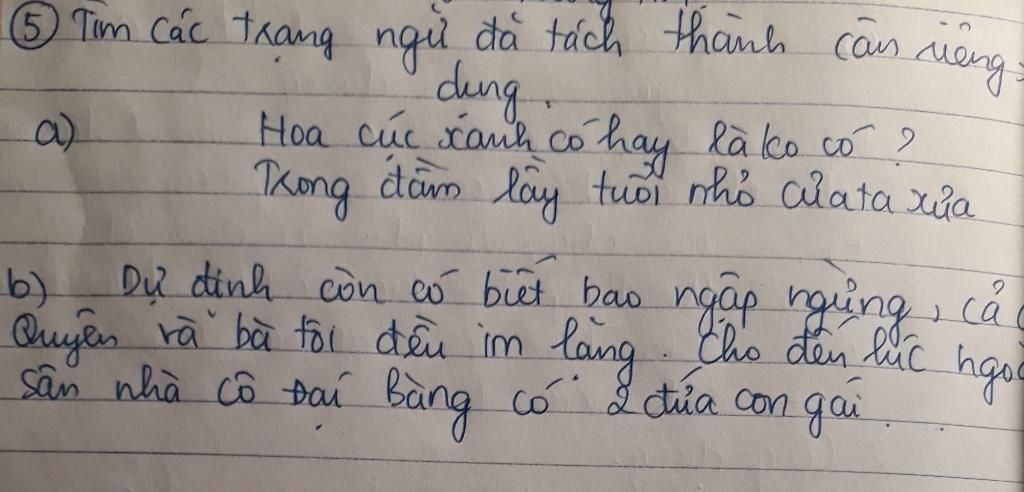 ⑤ Tìm các trạng ngữ đã tách thành câu riêng,
dụng.
a) Hoa cúc xanh có hay là ko có ?
Trong đầm lầy tuổi nhỏ của ta xưa
b) Dự định còn có biết bao ngập ngừng, cả
Quyên và bà tôi đều im lặng. Cho đến lúc
sân nhà cô Đại Bàng có 2 đứa con gái.